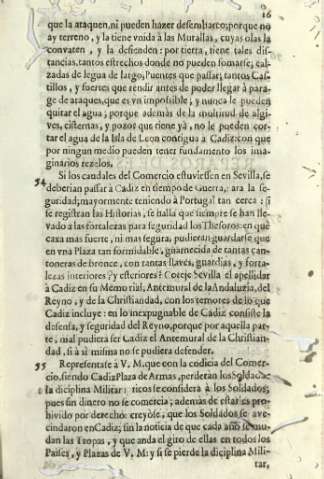 16
que la ataquen,ni pueden hazer desembarco;porque no
ay terreno, y la tiene vnida à las Murallas, cuyas olas la
convaten, y la defienden: por tierra, tiene tales dis-
tancias,tantos estrechos donde no pueden formarse; cal-
zadas de legua de largo, Puentes que passar; tantos Cas-
tillos, y fuertes que rendir antes de poder llegar à para-
ge de ataques,que es vn impossible; y nunca le pueden
quitar el agua; porque además de la multitud de algi-
ves, cisternas, y pozos que tiene yà, no le pueden cor-
tar el agua de la Isla de Leon contigua à Cadiz: con que
por ningun medio pueden tener fundamento los ima-
ginarios rezelos.
54 Si los caudales del Comercio estuviessen en Sevilla,se
deberian passar à Cadiz en tiempo de Guerra, para la se-
guridad;mayormente teniendo à Portugal tan cerca: si
se registran las Historias, se halla que siempre se han lle-
vado à las fortalezas para seguridad los Thesoros: en què
caxa mas fuerte, ni mas segura, pudieran guardarse que
en vna Plaza tan formidable, guarnecida de tantas can-
toneras de bronce, con tantas llaves, guardias, y forta-
lezas interiores, y esteriores? Coteje Sevilla el apellidar
à Cadiz en su Memorial, Antemural de la Andaluzia, del
Reyno, y de la Christiandad, con los temores de lo que
Cadiz incluye: en lo inexpugnable de Cadiz consiste la
defensa, y seguridad del Reyno,porque por aquella par-
te, mal pudiera ser Cadiz el Antemural de la Christian-
dad, si à si misma no se pudiera defender.
55 Representase à V. M. que con la codicia del Comer-
cio,siendo Cadiz Plaza de Armas, perderàn los Soldados
la diciplina Militar: ricos se considera à los Soldados,
pues sin dinero no se comercia; además de estarles pro-
hivido por derecho: creyòse, que los Soldados se ave-
cindaron en Cadiz; sin la noticia de que cada año se mu-
dan las Tropas, y que anda el giro de ellas en todos los
Paises, y Plazas de V. M: y si se pierde la diciplina Mili-
tar,